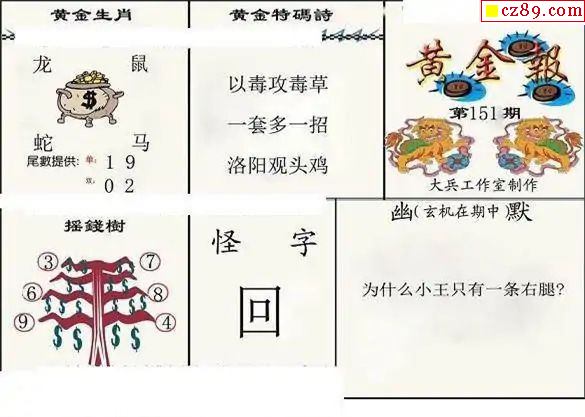 cz89.com
黄金生肖
龙 鼠
蛇 马
尾數提供: 单: 1 9
双: 0 2
黄金特碼詩
以毒攻毒草
一套多一招
洛阳观头鸡
黄金報
第151期
大兵工作室制作
摇錢樹
③ ⑦
⑥ ⑧
⑨ ④
怪 字
回
幽(玄机在期中)默
为什么小王只有一条右腿?